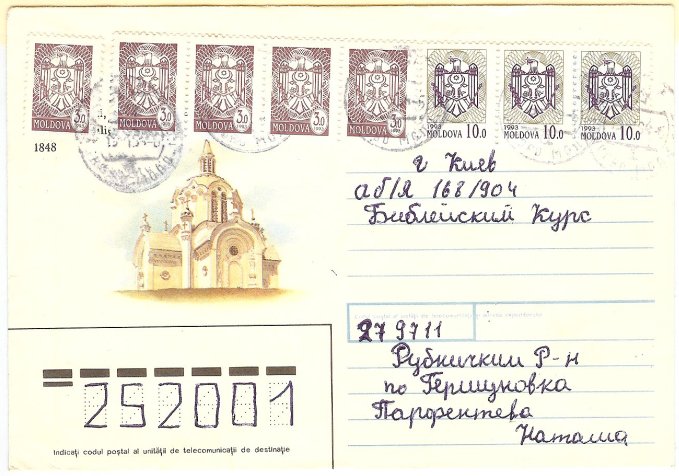 3.0 3.0 3.0 3.0 3.0 10.0 10.0 10.0
MOLDOVA MOLDOVA MOLDOVA MOLDOVA MOLDOVA 1993 MOLDOVA 1993 MOLDOVA 1993 MOLDOVA
1848
г Киев
аб/я 168/904
Библейский Курс
279711
Рубничкии Р-н
по Гершуновка
Парфентева
Наташа
252001
Indicați codul poștal al unității de telecomunicații de destinație